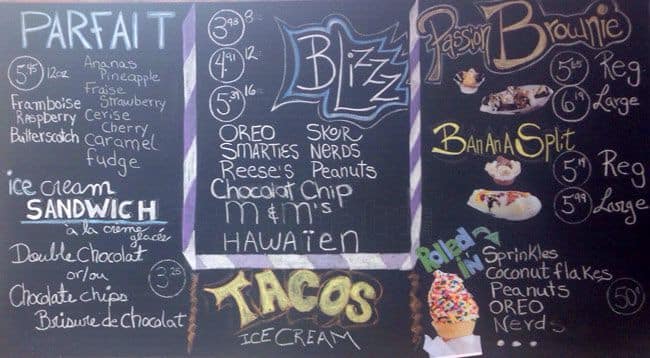 PARFAIT
5.45 12oz
Ananas
Pineapple
Fraise
Strawberry
Framboise
Raspberry
Butterscotch
Cerise
Cherry
Caramel
Fudge
ice cream
SANDWICH
a la crème
glacée
Double Chocolat
or/ou
Chocolate chips
Brisure de Chocolat
3.25
3.93 8oz
4.91 12
5.39 16
Blizzz
OREO SKOR
SMARTIES NERDS
Reese's Peanuts
Chocolat Chip
m & m's
HAWAÏEN
TACOS
ICE CREAM
Passion Brownie
5.65 Reg
6.19 Large
BANANA SPLIT
Reg
5.99 Large
Rolled IN
Sprinkles
Coconut flakes
Peanuts
OREO
Nerds
...
50¢